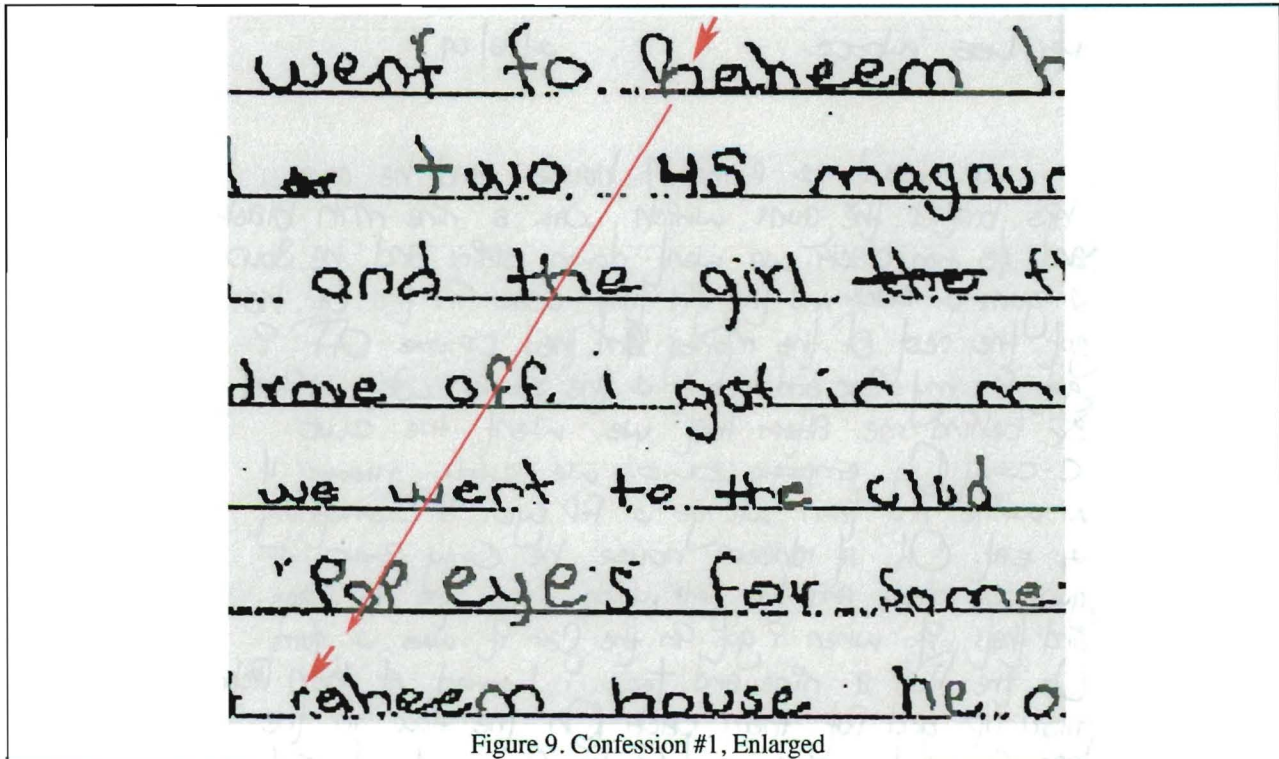 went to Raheem h
two 45 magnum
and the girl the
drove off. i got in
we went to the clud
"Popeye's for some
raheem house he a
Figure 9. Confession #1, Enlarged